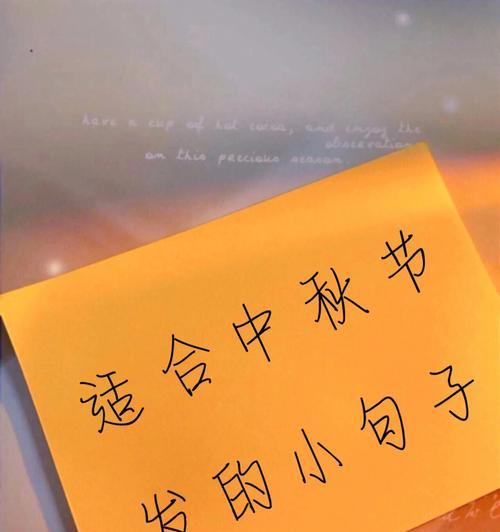 have a cup of hot cocoa, and enjoy the
observation
on this precious season.
适合中秋节
发的小句子